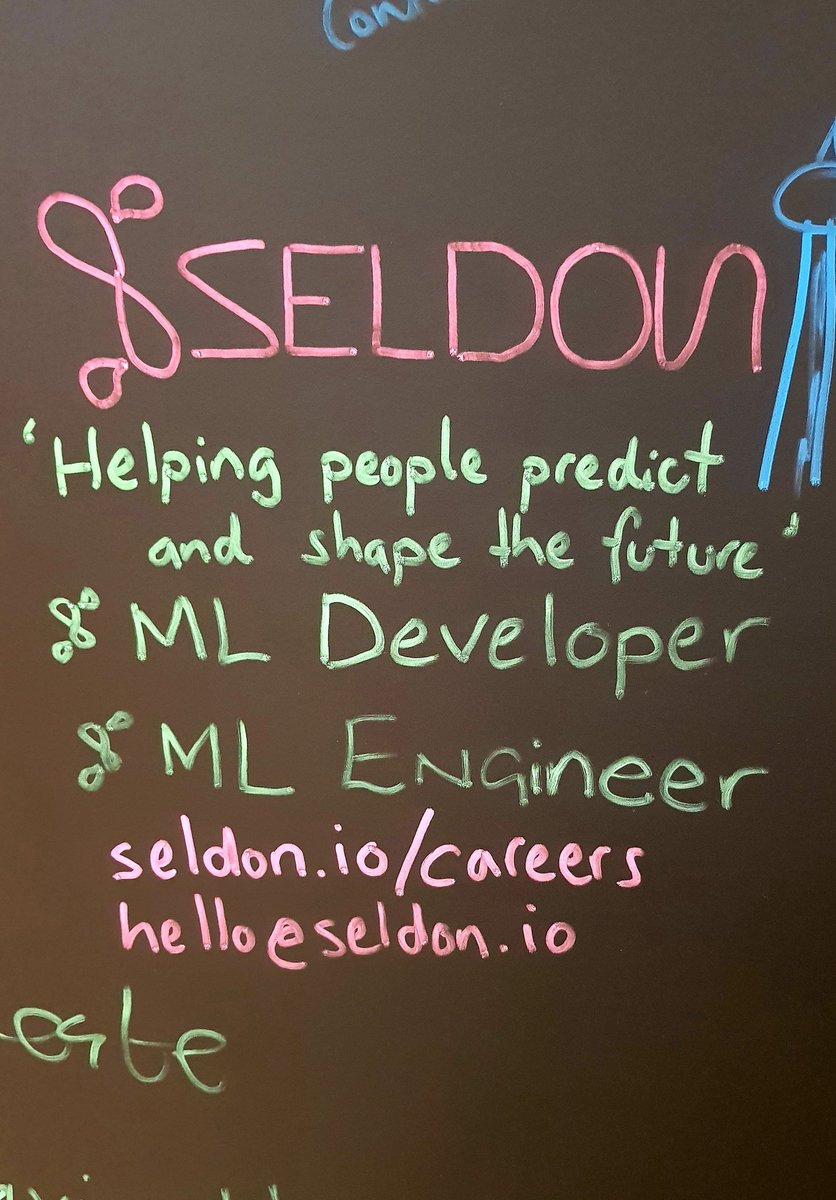 SELDON
'Helping people predict
and shape the future'
ML Developer
ML Engineer
seldon.io/careers
hello@seldon.io